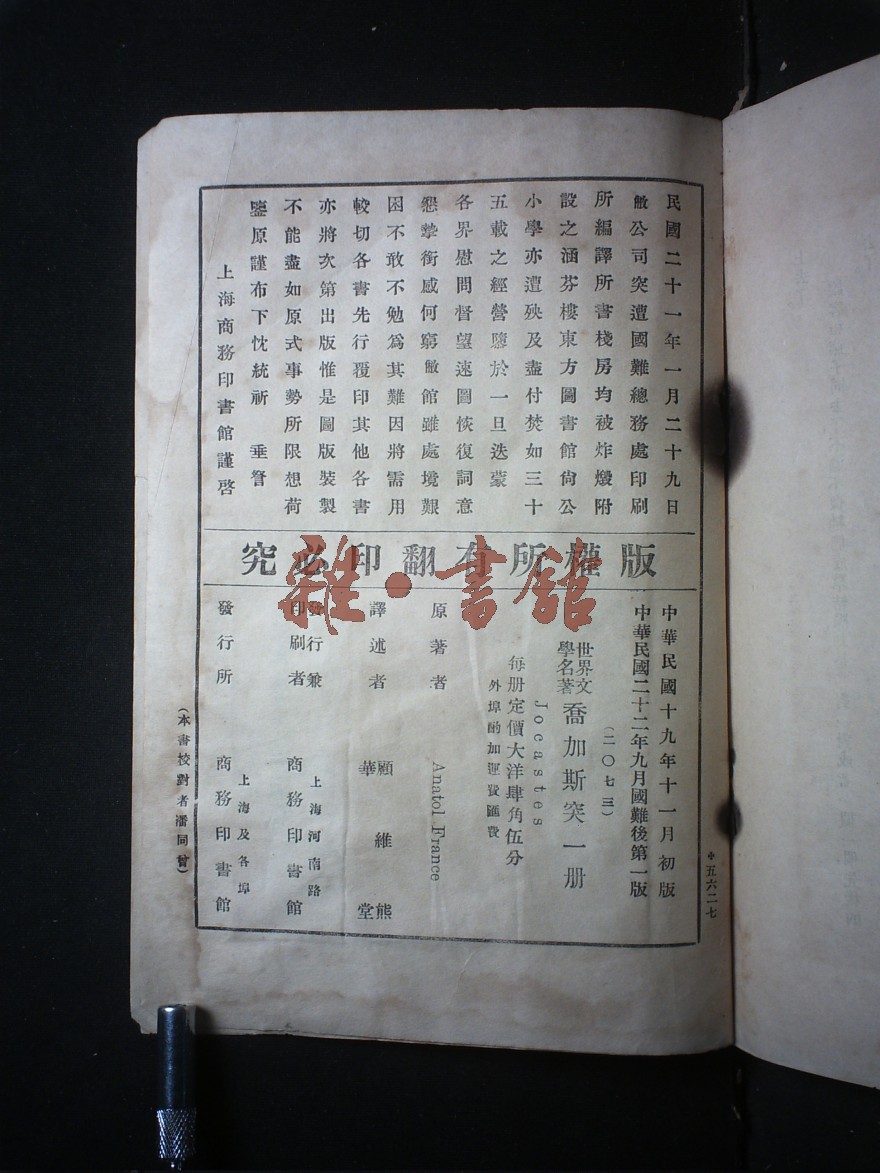 民國二十一年一月二十九日
敝公司突遭國難總務處印刷
所編譯所書棧房均被炸燬附
設之涵芬樓東方圖書館尙公
小學亦遭殃及盡付焚如三十
五載之經營隳於一旦迭蒙
各界慰問督望速圖恢復詞意
懇摯銜感何窮敝館雖處境艱
困不敢不勉爲其難因將需用
較切各書先行覆印其他各書
亦將次第出版惟是圖版裝製
不能盡如原式事勢所限想荷
鑒原謹布下忱統祈 垂詧
上海商務印書館謹啓
版權所有翻印必究
雜·書館
中華民國十九年十一月初版
中華民國二十二年九月國難後第一版
(二〇七三)
世界文學名著 喬加斯突一册
Jocastes
每册定價大洋肆角伍分
外埠酌加運費匯費
原著者 Anatol France
譯述者 顧維熊 華堂
發行兼印刷者 上海河南路 商務印書館
發行所 上海及各埠 商務印書館
(本書校對者潘同曾)
＊五六二七